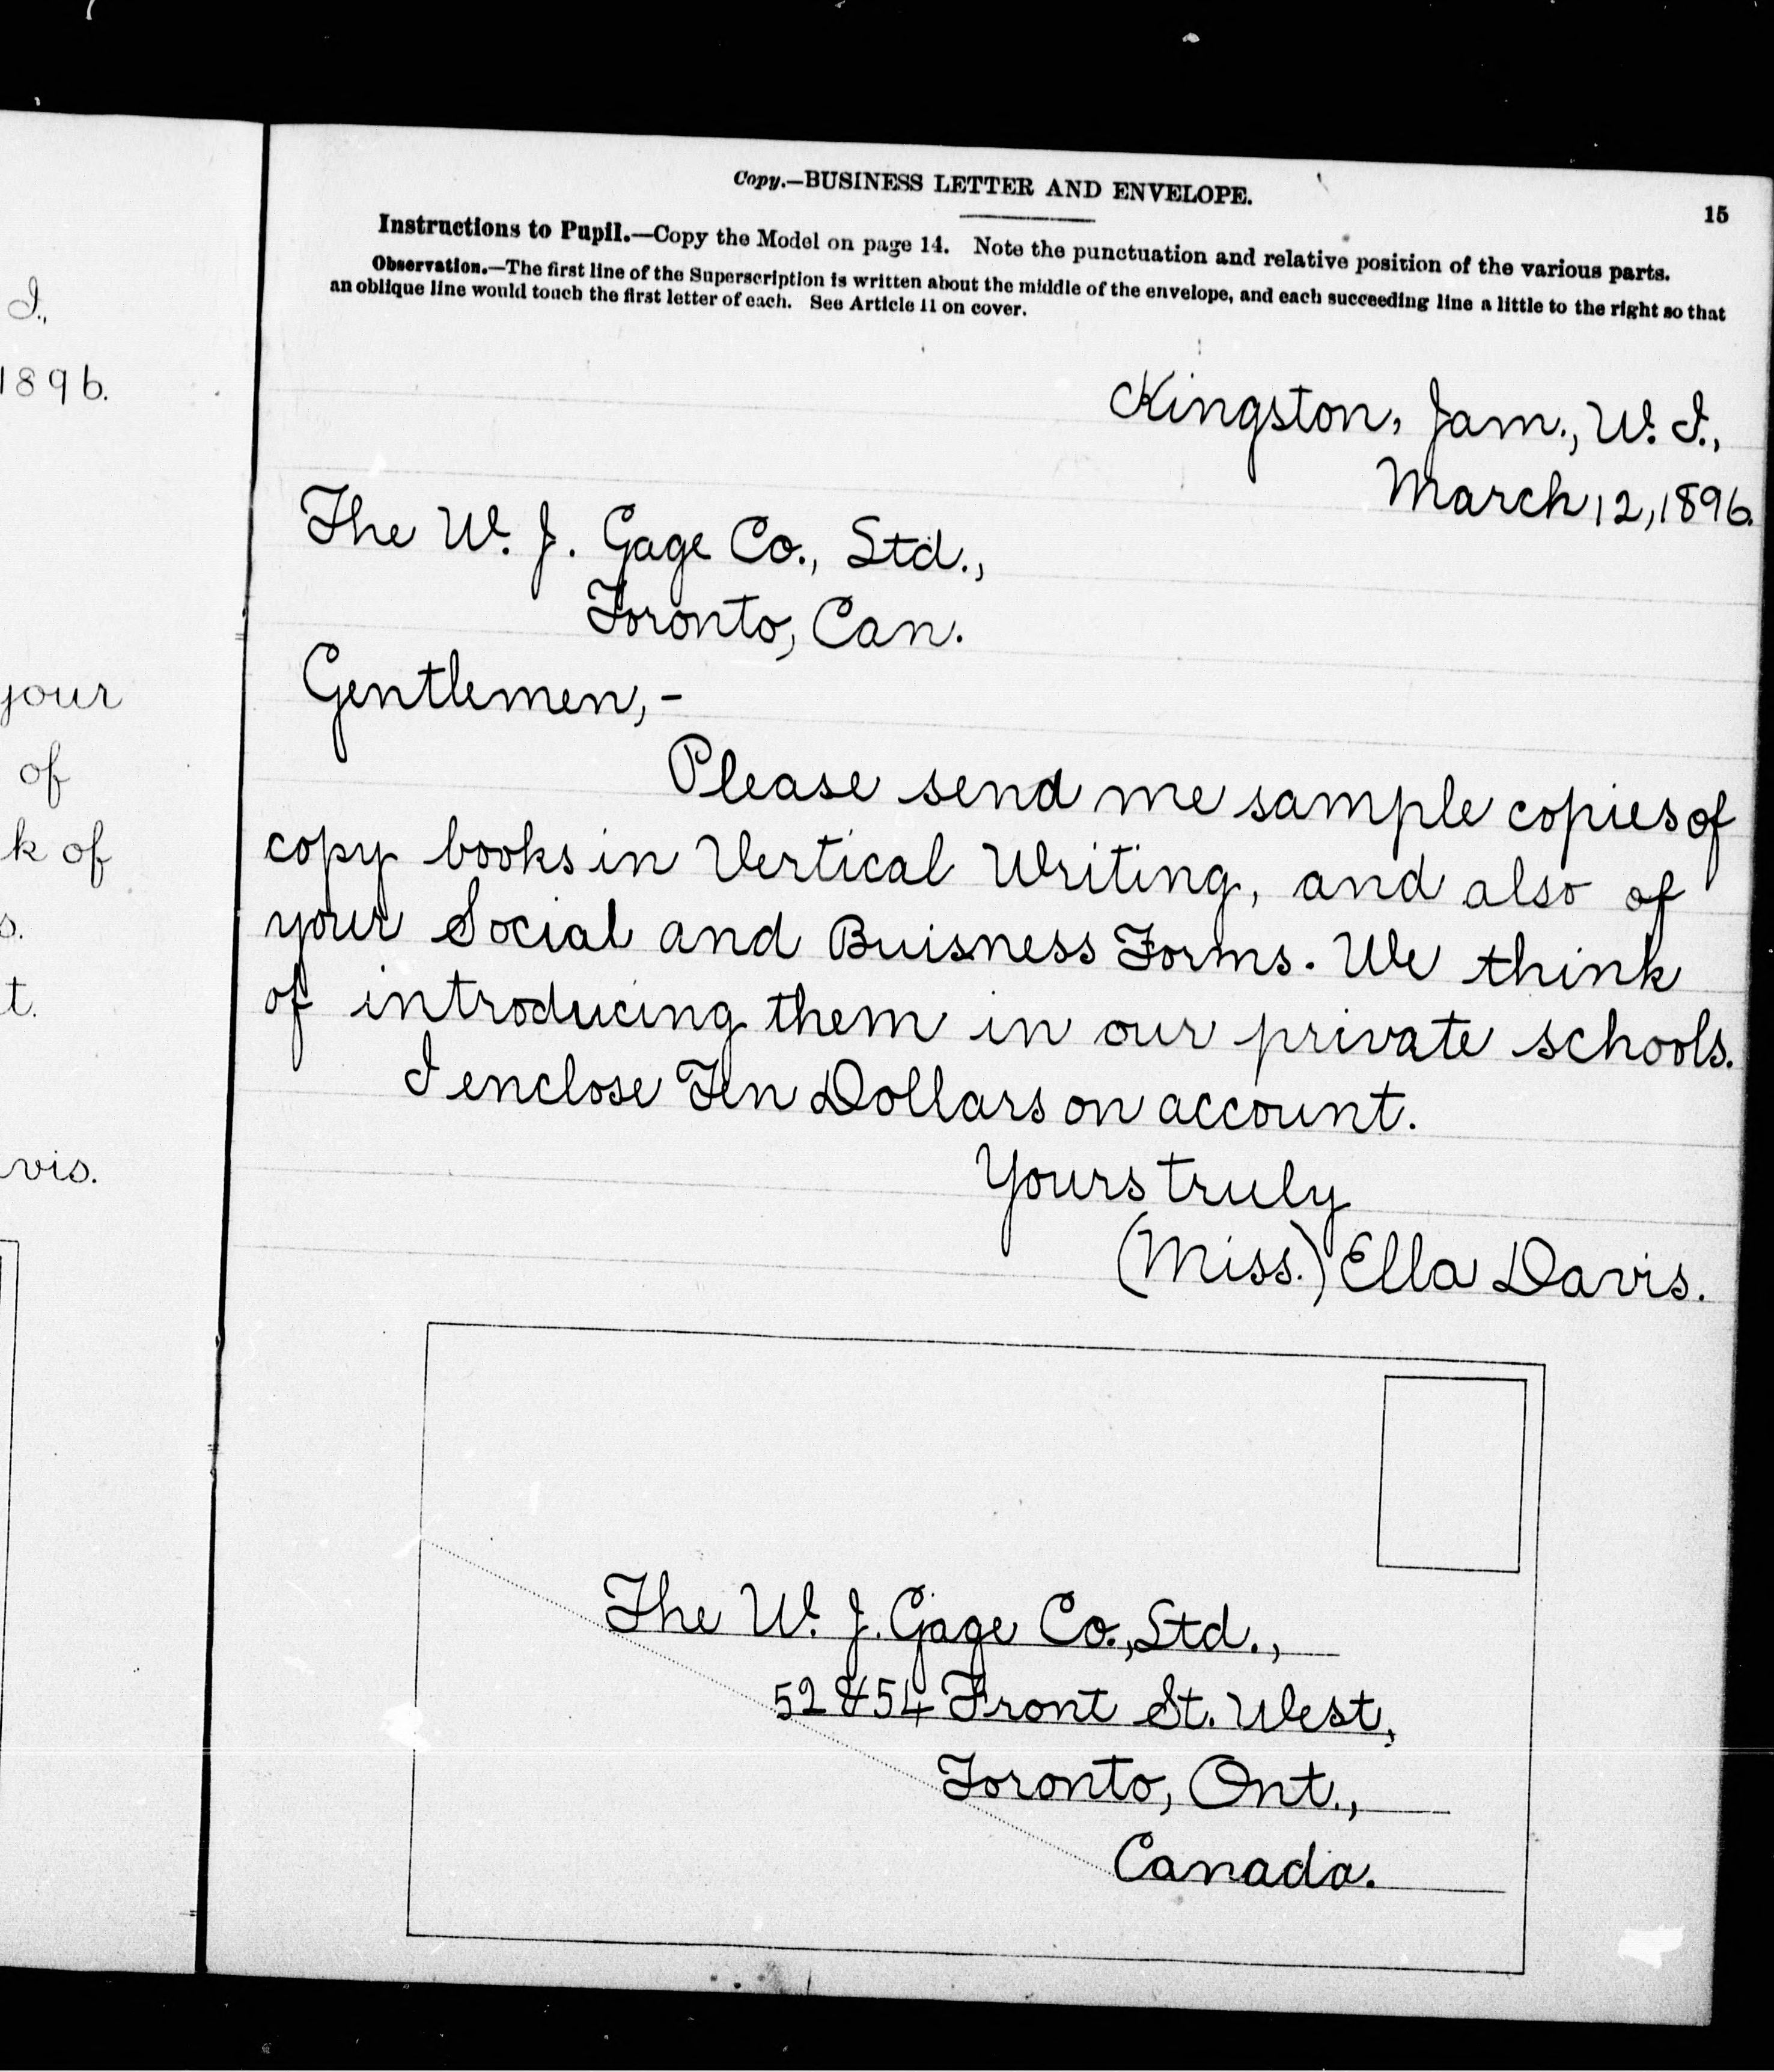 I.,
1896.
your
of
k of
s.
t.
vis.
Copy.—BUSINESS LETTER AND ENVELOPE.
15
Instructions to Pupil.—Copy the Model on page 14. Note the punctuation and relative position of the various parts.
Observation.—The first line of the Superscription is written about the middle of the envelope, and each succeeding line a little to the right so that
an oblique line would touch the first letter of each. See Article 11 on cover.
Kingston, Jam., W. I.,
March 12, 1896.
The W. J. Gage Co., Ltd.,
Toronto, Can.
Gentlemen,-
Please send me sample copies of
copy books in Vertical Writing, and also of
your Social and Buisness Forms. We think
of introducing them in our private schools.
I enclose Ten Dollars on account.
Yours truly
(Miss.) Ella Davis.
The W. J. Gage Co., Ltd.,
52 & 54 Front St. West,
Toronto, Ont.,
Canada.